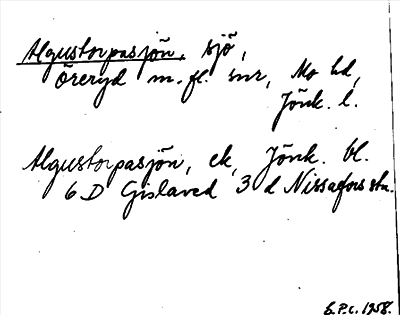 Algustorpasjön, sjö,
Öreryd m. fl. snr, Mo hd,
Jönk. l.
Algustorpasjön, ek, Jönk. bl.
6 D Gislaved 3 d Nissafors stn.
E.P.C. 1958.